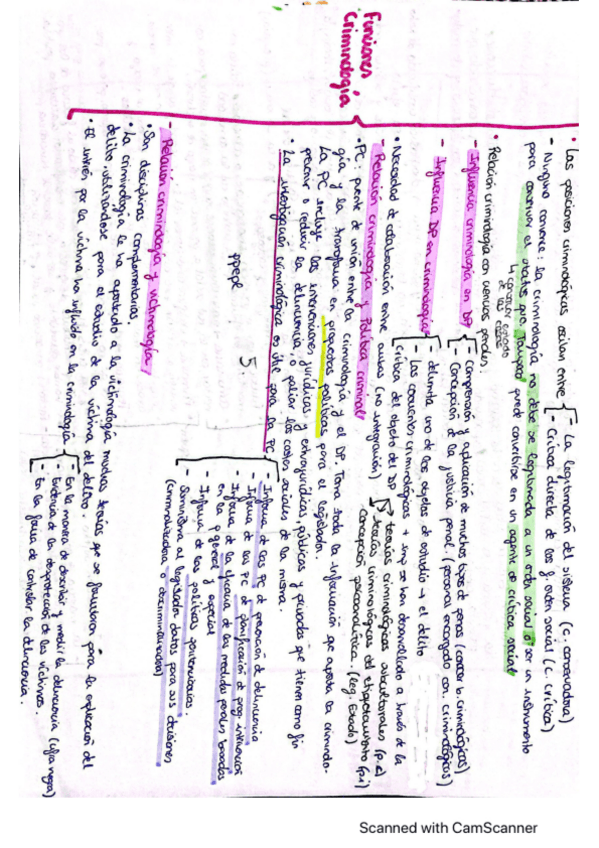 Funciones
Criminología
• Las posiciones criminológicas oscilan entre
- La legitimación del sistema (c. conservadora)
- Crítica directa de las f. orden social (c. crítica)
- Ninguna conviene: la criminología no debe ser legitimada a un orden social o ser un instrumento
para conservar el status quo. Tampoco puede convertirse en un agente de crítica social
↳ conservar estado
de las cosas
• Relación criminología con ciencias penales.
- Influencia criminología en DP
- Comprensión y aplicación de muchos tipos de penas (conocer b. criminológicas)
- Concepción de la justicia penal. (personal encargado con. criminológicos)
- Influencia DP en criminología
- delimita uno de los objetos de estudio → el delito
- Las corrientes criminológicas + imp se han desarrollado a través de la
crítica del objeto del DP
teorías criminológicas subculturales (p.e)
teorías criminológicas del etiquetamiento (p.i)
concepción psicoanalítica. (leg. Estado)
• Necesidad de colaboración entre ambas (no integración)
- Relación criminología y Política criminal
• PC: puente de unión entre la criminología y el DP. Toma toda la información que aporta la criminolo-
gía y la transforma en propuestas políticas para el legislador.
La PC incluye las intervenciones jurídicas y extrajurídicas, públicas y privadas que tienen como fin
prevenir o reducir la delincuencia, o paliar los costes sociales de la misma.
• La investigación criminológica es útil para la PC
- Informa de las PC de prevención de delincuencia
- Informa de las PC de planificación de prog. intervención
- Informa de la eficacia de las medidas penales basadas
en la p general y especial
- Informa de las políticas penitenciarias.
- Suministra al legislador datos para sus decisiones
(criminalizadora o descriminalizadora)
PPEPL
5.
- Relación criminología y victimología
• Son disciplinas complementarias.
• La criminología le ha aportado a la victimología muchas teorías que se formularon para la explicación del
delito utilizándose para el estudio de la víctima del delito.
• El interés por la víctima ha influido en la criminología
- En la manera de describir y medir la delincuencia (cifra negra)
- Evidencia de la desprotección de las víctimas.
- En la forma de controlar la delincuencia.
Scanned with CamScanner